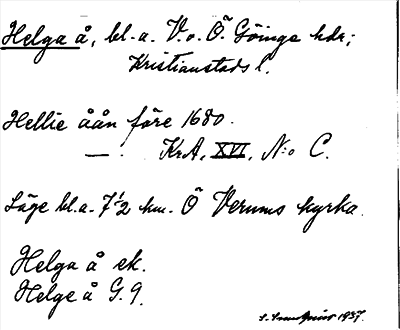 Helga å, bl.a. V. o. Ö. Göinge hdr;
Kristianstads l.
Hellie åån före 1680.
— . KrA, XVI, N:o C.
Läge bl.a. 7 1/2 km. Ö Verums kyrka.
Helga å ek.
Helge å G. 9.
1937.